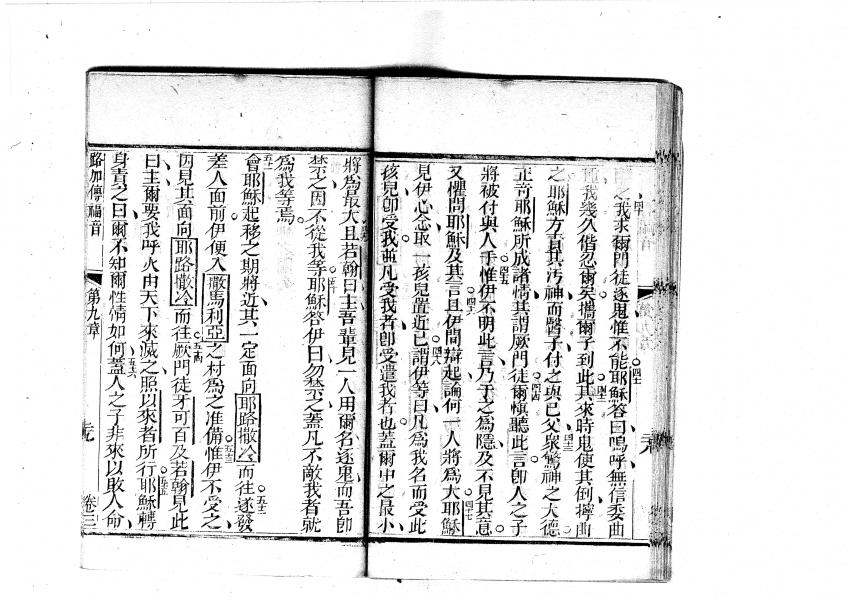 四十
我求爾門徒逐鬼惟不能耶穌答曰嗚呼無信委曲
我幾久偕忍爾矣攜爾子到此其來時鬼使其倒擰曲
之耶穌方責其汚神而醫子付之與己父衆驚神之大德
正奇耶穌所成諸情其謂厥門徒爾慎聽此言卽人之子
將被付與人手惟伊不明此言乃于之為隱及不見其意
又懼問耶穌及其言且伊間辯起論何一人將為大耶穌
見伊心念取一孩兒置近己謂伊等曰凡為我名而受此
孩兒卽受我並凡受我者卽受遣我者也蓋爾中之最小
將為最大且若翰曰主吾輩見一人用爾名逐鬼而吾卽
禁之因不從我等耶穌答伊曰勿禁之蓋凡不敵我者就
為我等焉
會耶穌起移之期將近其一定面向耶路撒冷而往遂發
差人面前伊便入撒馬利亞之村為之准備惟伊不受之
因見其面向耶路撒冷而往厥門徒牙可百及若翰見此
曰主爾要我呼火由天下來滅之照以來者所行耶穌轉
身責之曰爾不知爾性情如何蓋人之子非來以敗人命
路加傳福音
第九章
卷三